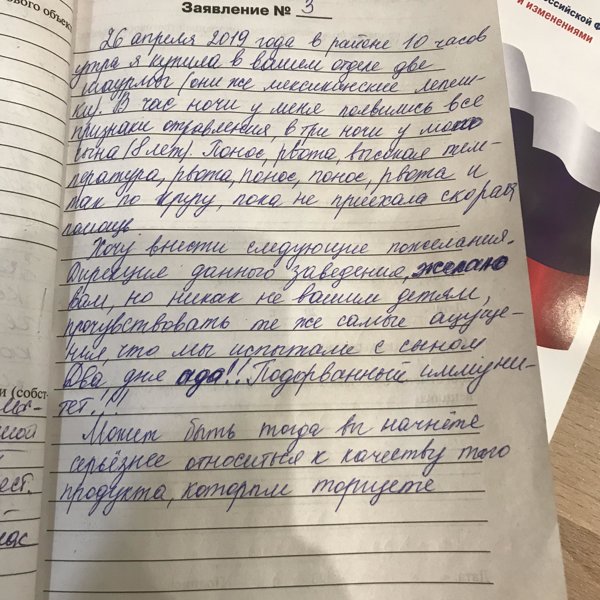 Заявление № 3
26 апреля 2019 года в районе 10 часов
утра я купила в вашем отделе две
шаурмы (они же мексиканские лепеш-
ки). В час ночи у меня появились все
признаки отравления, в три ночи у моего
сына (8 лет). Понос, рвота, высокая тем-
пература, рвота, понос, понос, рвота и
так по кругу, пока не приехала скорая
помощь.
Хочу внести следующие пожелания.
Дирекция данного заведения, желаю
вам, но никак не вашим детям,
прочувствовать те же самые ощуще-
ния, что мы испытали с сыном
Два дня ада!! Подорванный иммуни-
тет!!!
Может быть тогда вы начнёте
серьёзнее относиться к качеству того
продукта, которым торгуете
ового объек
и (собст-
ест.
нас
ссийской Ф
и изменениями